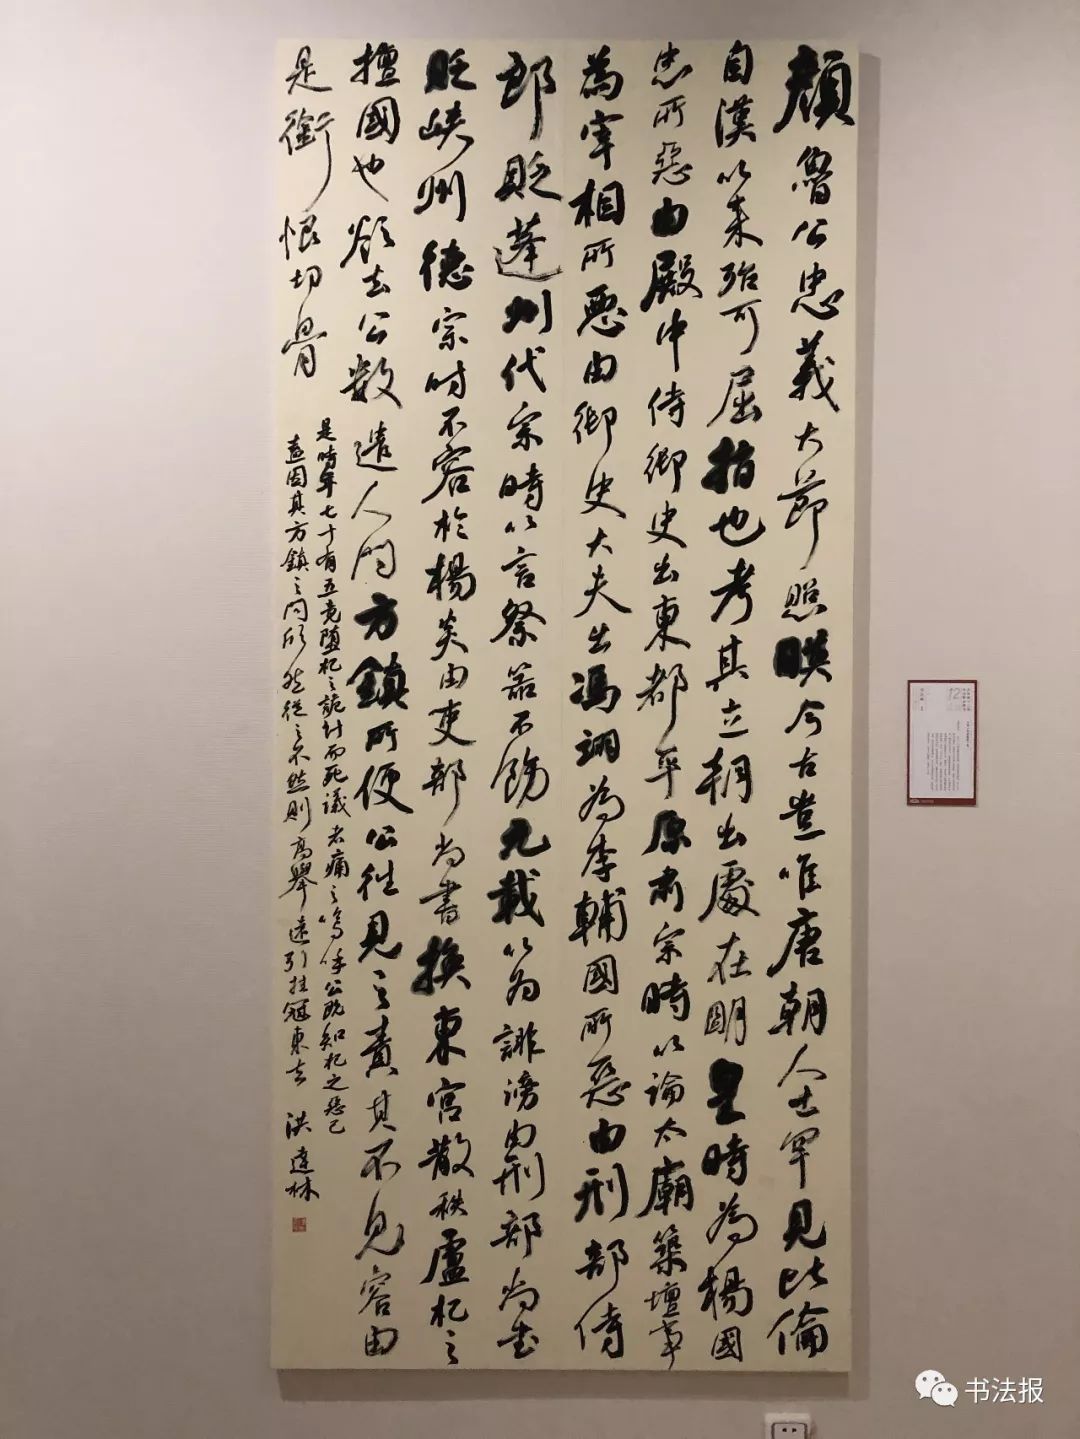 顔魯公忠義大節照暎今古豈唯唐朝人士罕見比倫
自漢以来殆可屈指也考其立朝出處在明皇時為楊國
忠所惡由殿中侍御史出東都平原肅宗時以論太廟築壇事
為宰相所惡由御史大夫出馮翊為李輔國所惡由刑部侍
郎貶蓬州代宗時以言祭器不飭元載以為誹謗由刑部尚書
貶峽州德宗時不容於楊炎由吏部尚書換東宮散秩盧杞之
擅國也欲去公數遣人問方鎮所便公往見之責其不見容由
是銜恨切骨
是時年七十有五竟墮杞之詭計而死議者痛之嗚呼公既知杞之惡己
盍因其方鎮之問欣然從之不然則高舉遠引挂冠東去
洪達林
12
书法报